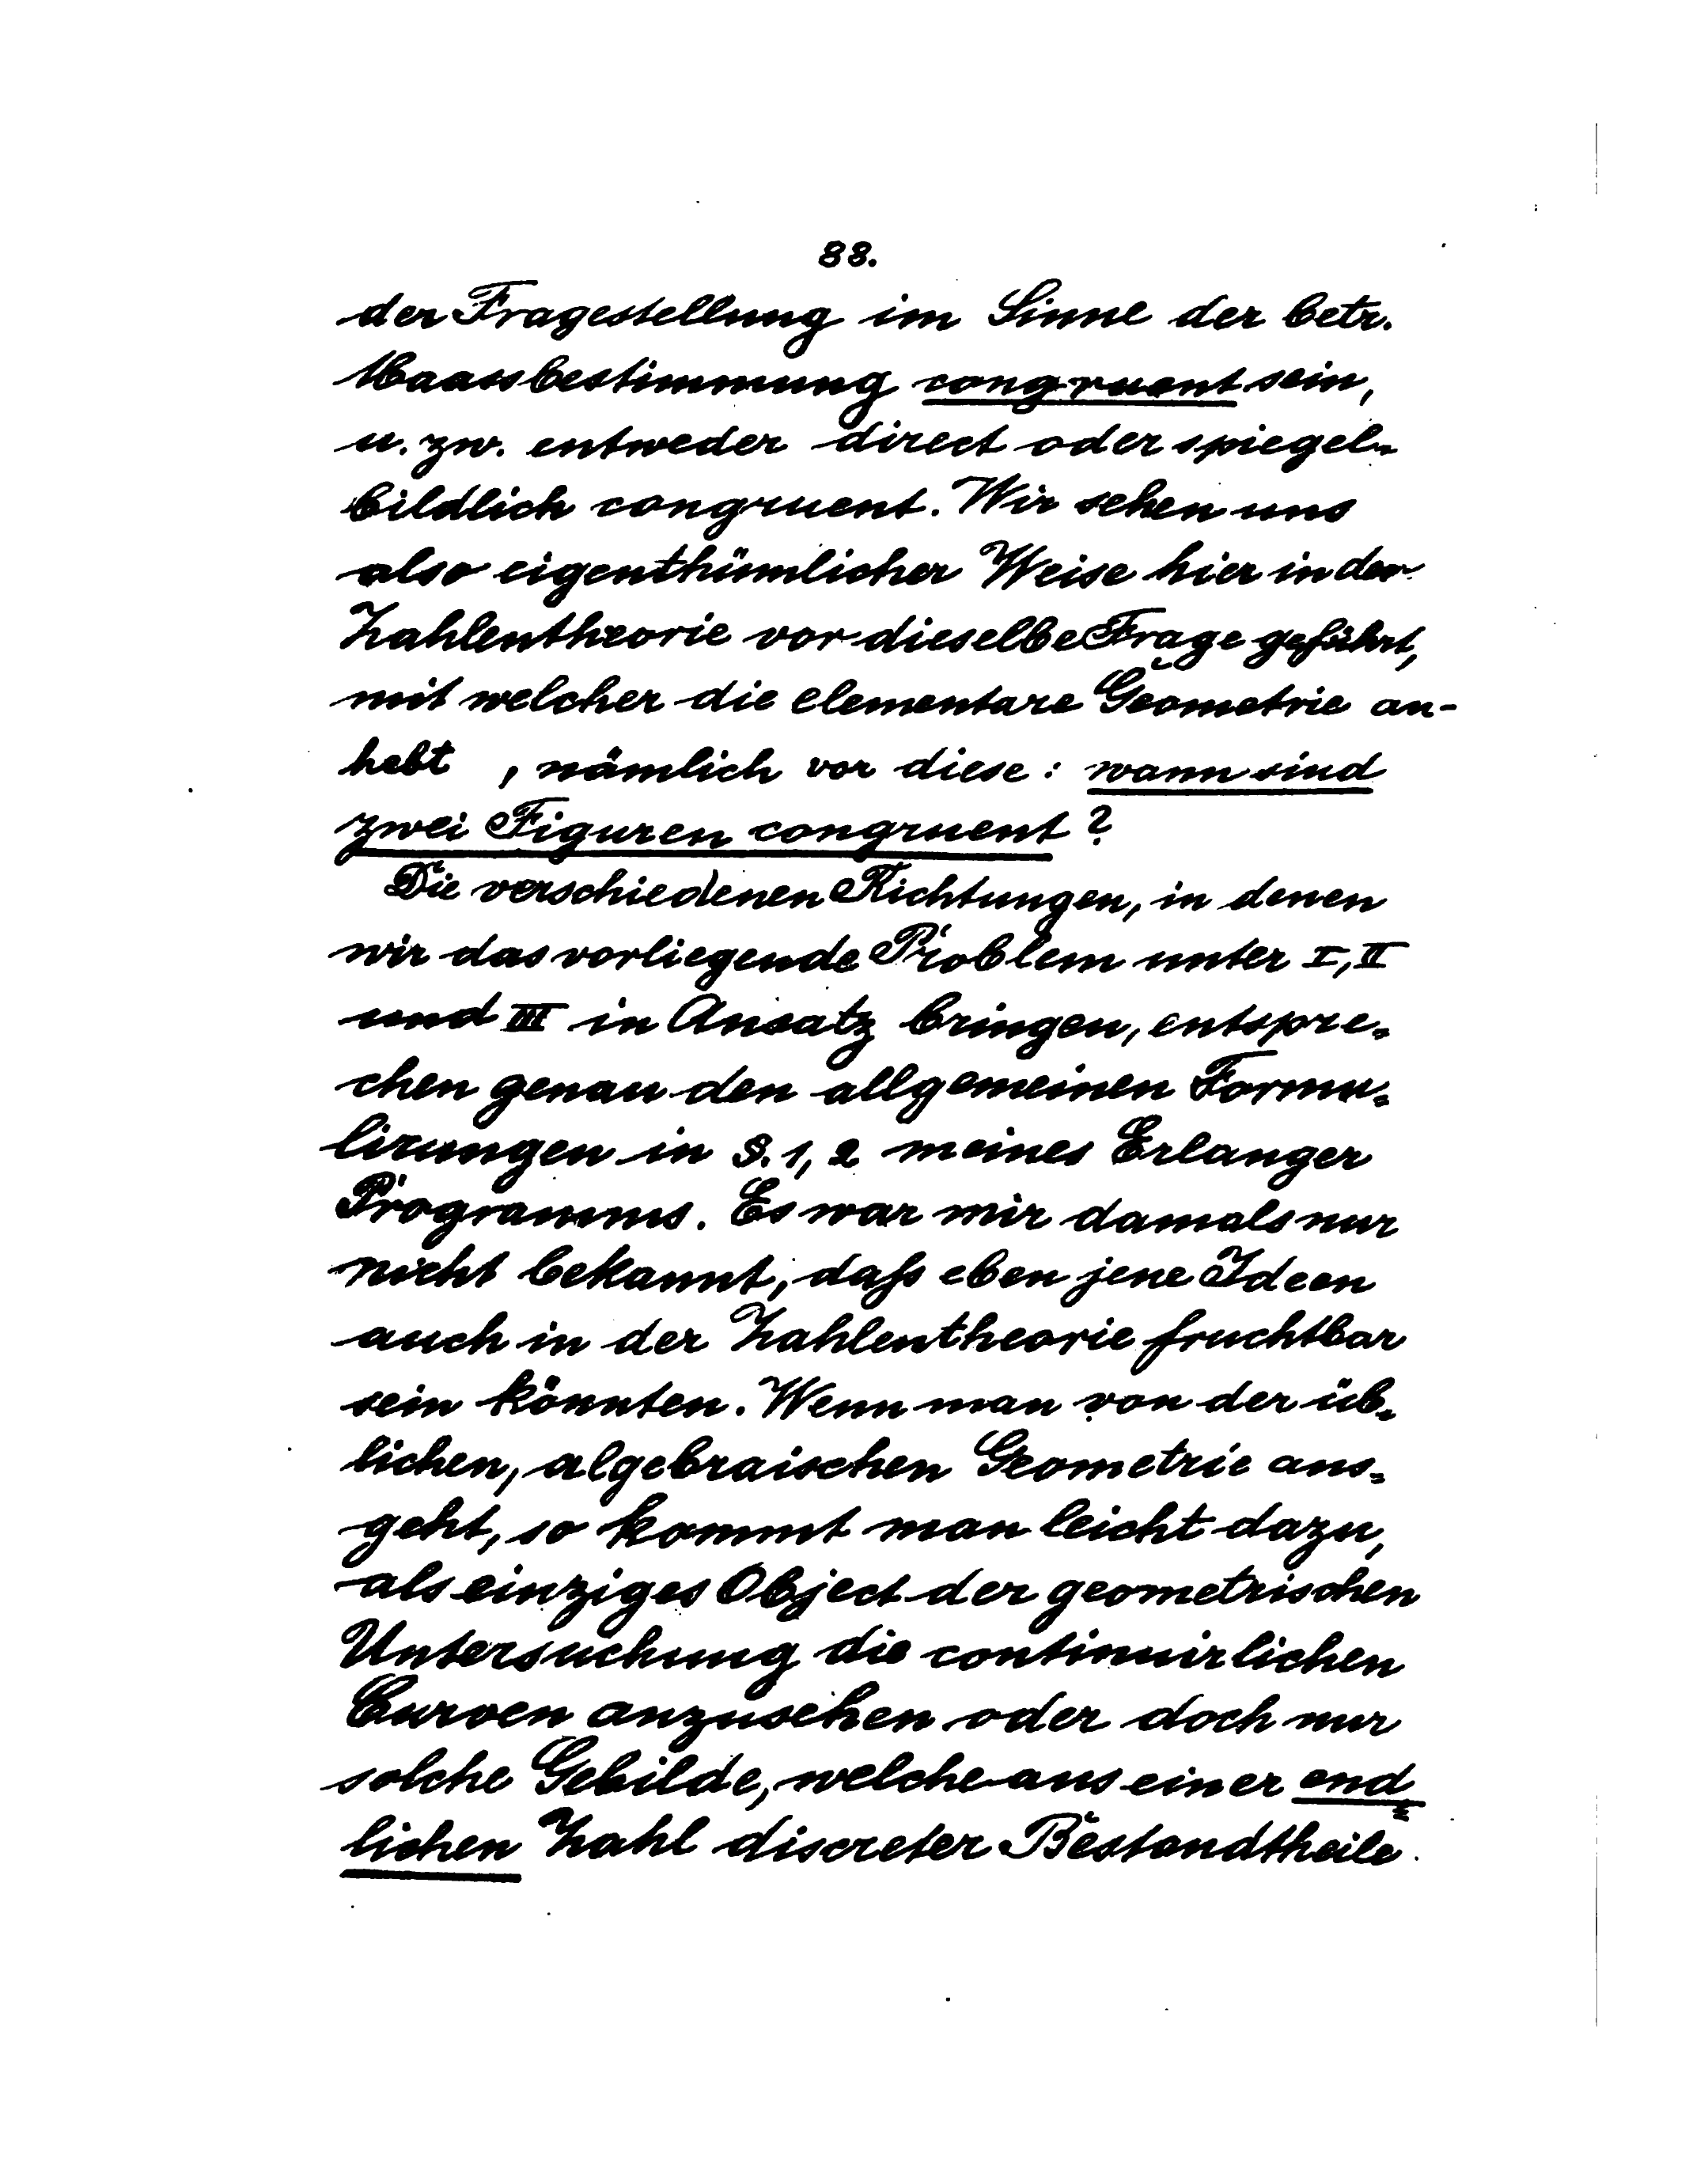 88.
der Fragestellung im Sinne der betr.
Maassbestimmung congruent sein,
u. zw. entweder direct oder spiegel-
bildlich congruent. Wir sehen uns
also eigenthümlicher Weise hier in der
Zahlentheorie vor dieselbe Frage geführt,
mit welcher die elementare Geometrie an-
hebt , nämlich vor diese: wann sind
zwei Figuren congruent?
Die verschiedenen Richtungen, in denen
wir das vorliegende Problem unter I, II
und III in Ansatz bringen, entspre-
chen genau den allgemeinen Formu-
lirungen in §. 1, 2 meines Erlanger
Programms. Es war mir damals nur
nicht bekannt, daß eben jene Ideen
auch in der Zahlentheorie fruchtbar
sein könnten. Wenn man von der üb-
lichen, algebraischen Geometrie aus-
geht, so kommt man leicht dazu,
als einziges Object der geometrischen
Untersuchung die continuirlichen
Curven anzusehen oder doch nur
solche Gebilde, welche aus einer end-
lichen Zahl discreter Bestandtheile